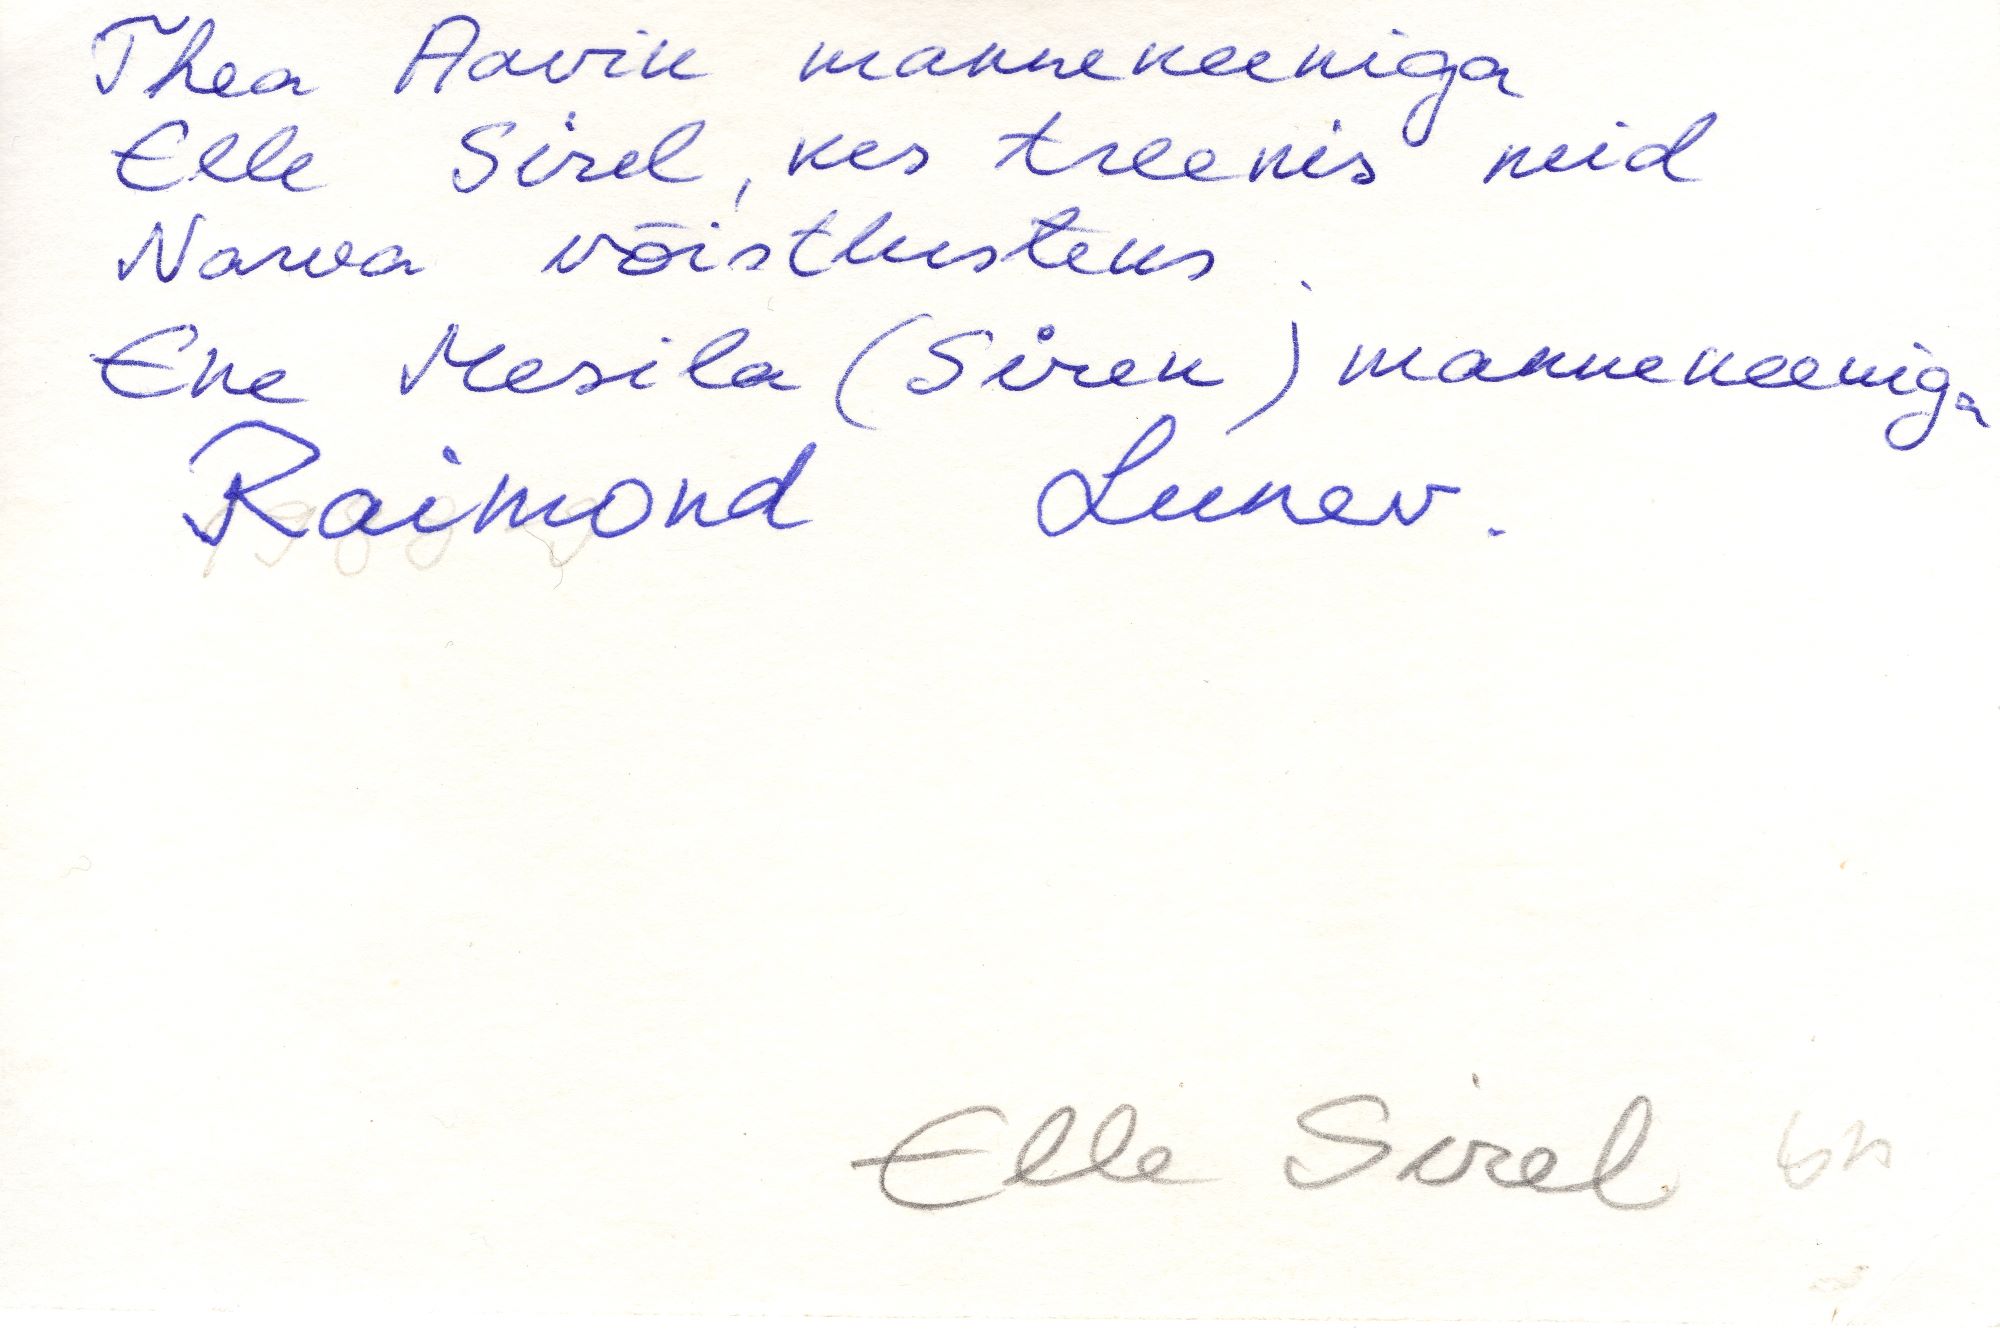 Thea Aavik mannekeeniga
Elle Sirel, kes treenis meid
Narva võistlusteks.
Ene Mesila (Sirek) mannekeeniga
Raimond Lunev.
1988
Elle Sirel